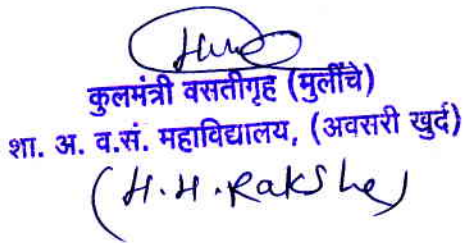 कुलमंत्री वसतीगृह (मुलींचे)
शा. अ. व.सं. महाविद्यालय, (अवसरी खुर्द)
(H.H.Rakshe)